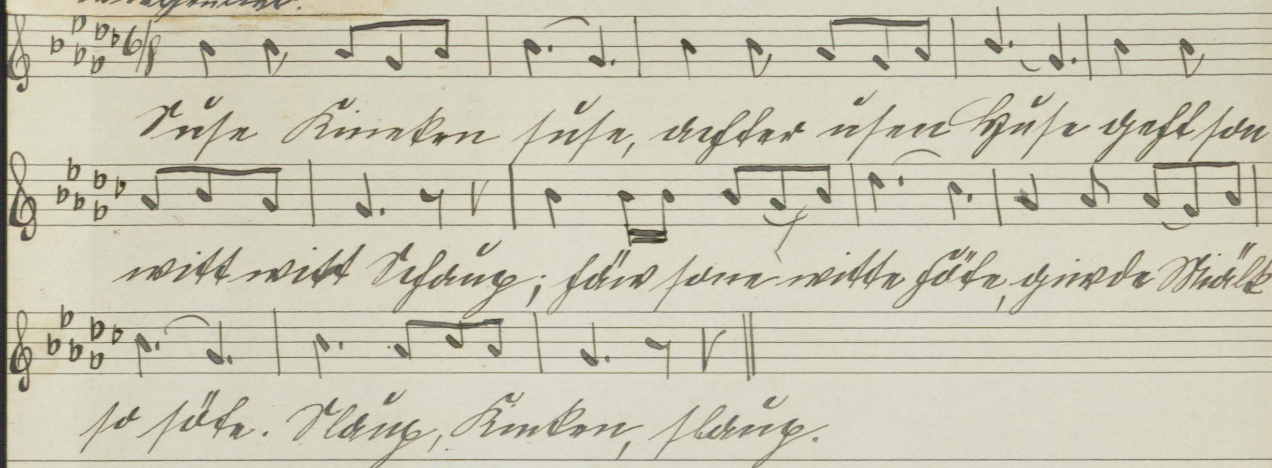 6/8
Suse Kineken suse, achter usen Huse geht son
witt witt Schaup; häw sone witte Föte, giwde Miälk
so söte. Slaup, Kinken, slaup.